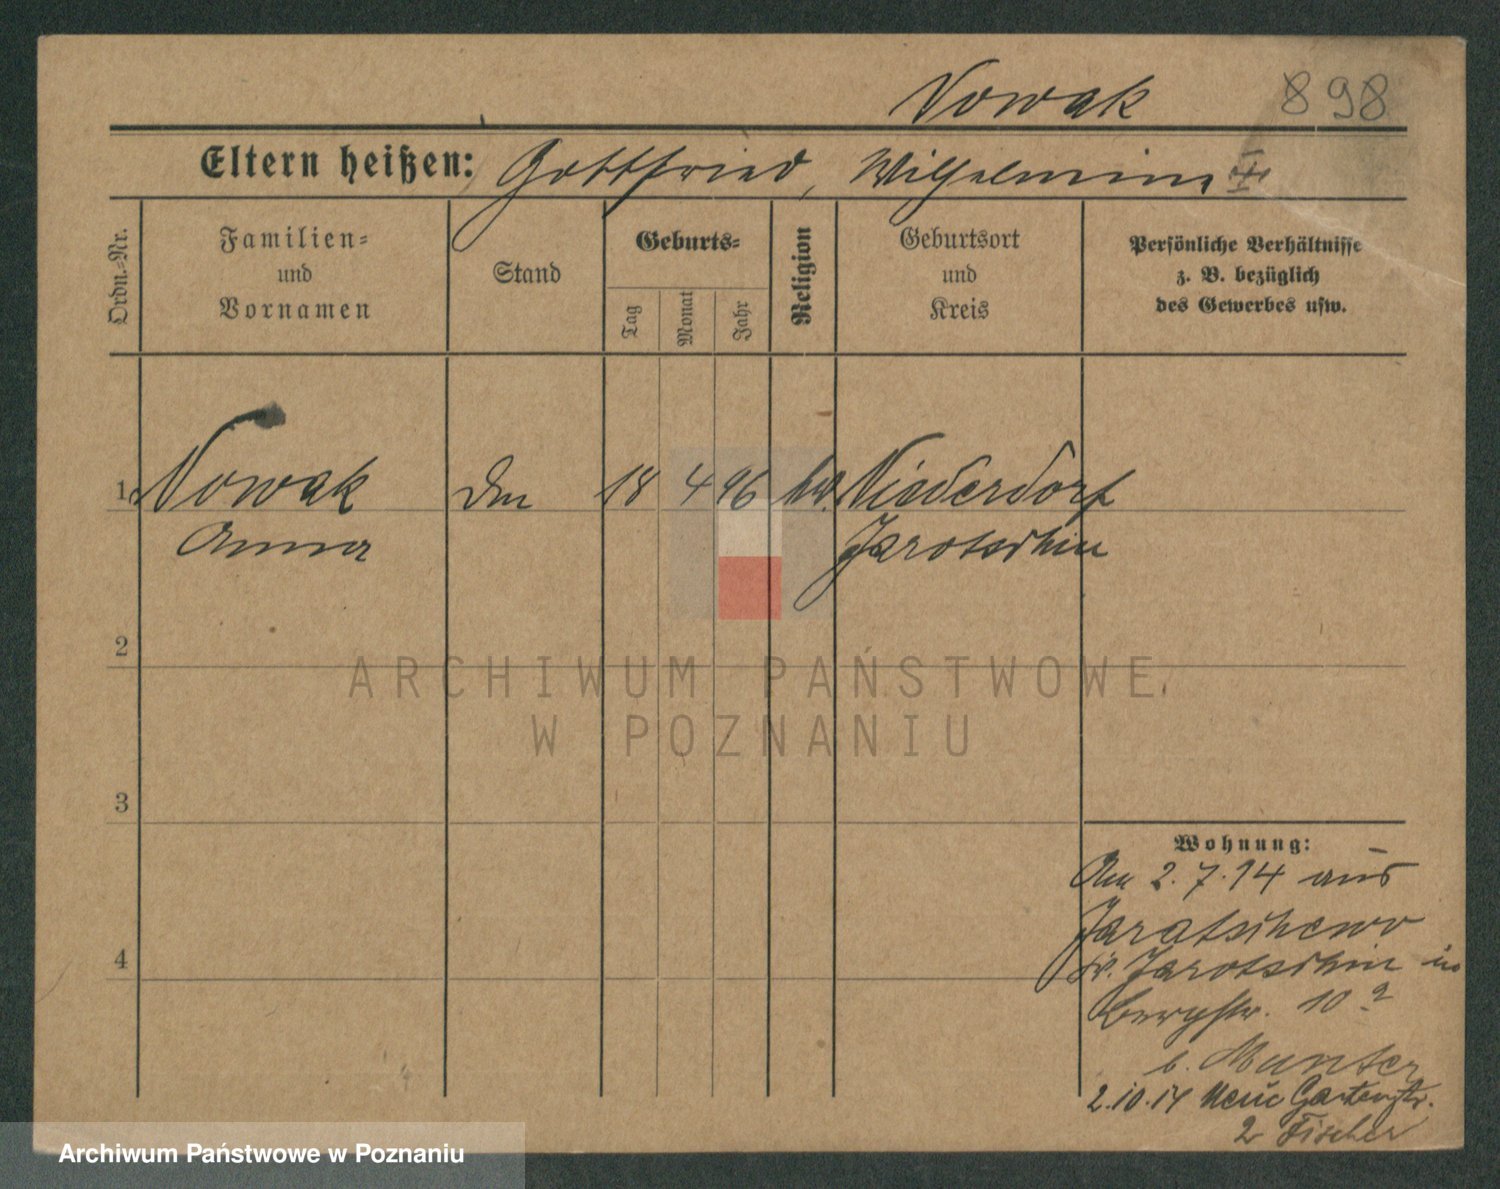 Nowak 898
Eltern heißen: Gottfried, Wilhelmine
Ordn.-Nr.
Familien-
und
Vornamen
Stand
Geburts-
Tag
Monat
Jahr
Religion
Geburtsort
und
Kreis
Persönliche Verhältnisse
z. B. bezüglich
des Gewerbes usw.
1 Nowak 18 4 96 Niederdorf
Anna Jarotschin
2
3
4
Wohnung:
Am 2.7.14 aus
Jaratschewo
Kr. Jarotschin in
Bergstr. 10a
b. Munter
2.10.14 Neue Gartenstr.
2 Fischer
ARCHIWUM PAŃSTWOWE
W POZNANIU
Archiwum Państwowe w Poznaniu